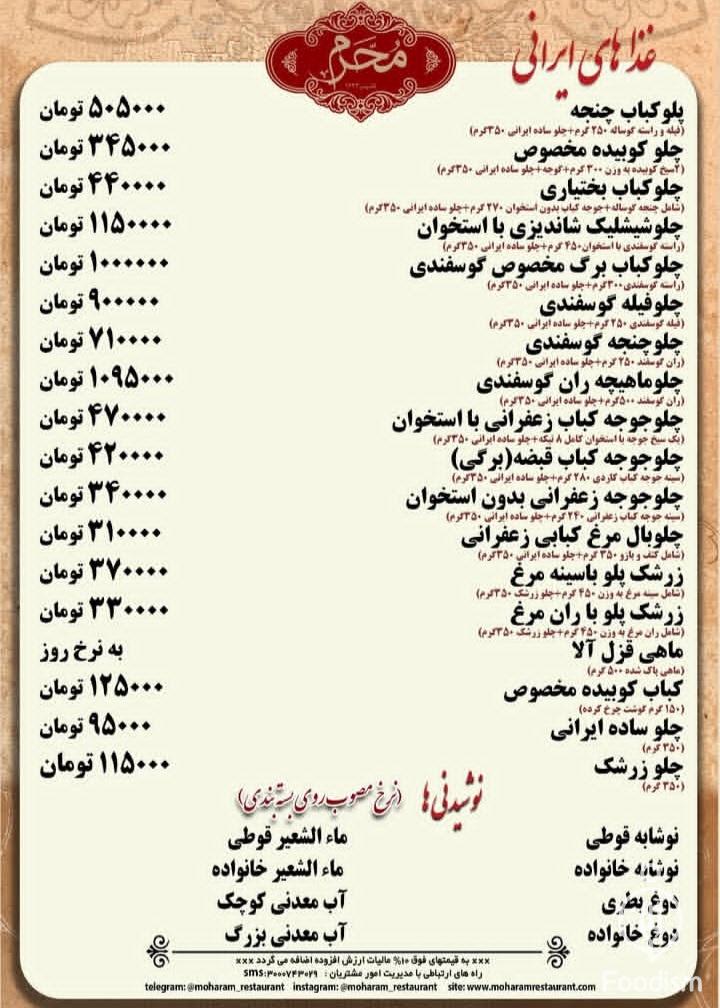 غذاهای ایرانی
محرم
پلوکباب چنجه ۵۰۵۰۰۰ تومان
(فیله و راسته گوساله ۲۵۰ گرم+چلو ساده ایرانی ۳۵۰گرم)
چلو کوبیده مخصوص ۳۴۵۰۰۰ تومان
(۲سیخ کوبیده به وزن ۳۰۰ گرم+گوجه+چلو ساده ایرانی ۳۵۰گرم)
چلوکباب بختیاری ۴۴۰۰۰۰ تومان
(شامل چنجه گوساله+جوجه کباب بدون استخوان ۲۷۰ گرم+چلو ساده ایرانی ۳۵۰گرم)
چلوشیشلیک شاندیزی با استخوان ۱۱۵۰۰۰۰ تومان
(راسته گوسفندی با استخوان۴۵۰ گرم+چلو ساده ایرانی ۳۵۰گرم)
چلوکباب برگ مخصوص گوسفندی ۱۰۰۰۰۰۰ تومان
(راسته گوسفندی۳۰۰گرم+چلو ساده ایرانی ۳۵۰گرم)
چلوفیله گوسفندی ۹۰۰۰۰۰ تومان
(فیله گوسفندی ۲۵۰ گرم+چلو ساده ایرانی ۳۵۰گرم)
چلوچنجه گوسفندی ۷۱۰۰۰۰ تومان
(ران گوسفند ۲۵۰ گرم+چلو ساده ایرانی ۳۵۰گرم)
چلوماهیچه ران گوسفندی ۱۰۹۵۰۰۰ تومان
(ران گوسفند ۵۰۰گرم+چلو ساده ایرانی ۳۵۰گرم)
چلوجوجه کباب زعفرانی با استخوان ۴۷۰۰۰۰ تومان
(یک سیخ جوجه با استخوان کامل ۸ تیکه+چلو ساده ایرانی ۳۵۰گرم)
چلوجوجه کباب قبضه(برگی) ۴۲۰۰۰۰ تومان
(سینه جوجه کباب کاردی ۲۸۰ گرم+چلو ساده ایرانی ۳۵۰گرم)
چلوجوجه زعفرانی بدون استخوان ۳۴۰۰۰۰ تومان
(سینه جوجه کباب زعفرانی ۲۴۰ گرم+چلو ساده ایرانی ۳۵۰گرم)
چلوبال مرغ کبابی زعفرانی ۳۱۰۰۰۰ تومان
(شامل کتف و بازو ۳۵۰ گرم+چلو ساده ایرانی ۳۵۰گرم)
زرشک پلو باسینه مرغ ۳۷۰۰۰۰ تومان
(شامل سینه مرغ به وزن ۴۵۰ گرم+چلو زرشک ۳۵۰گرم)
زرشک پلو با ران مرغ ۳۳۰۰۰۰ تومان
(شامل ران مرغ به وزن ۴۵۰ گرم+چلو زرشک ۳۵۰گرم)
ماهی قزل آلا به نرخ روز
(ماهی پاک شده ۵۰۰ گرم)
کباب کوبیده مخصوص ۱۲۵۰۰۰ تومان
(۱۵۰ گرم گوشت چرخ کرده)
چلو ساده ایرانی ۹۵۰۰۰ تومان
(۳۵۰ گرم)
چلو زرشک ۱۱۵۰۰۰ تومان
(۳۵۰ گرم)
نوشیدنی‌ها (نرخ مصوب روی بسته‌بندی)
نوشابه قوطی ماء الشعیر قوطی
نوشابه خانواده ماء الشعیر خانواده
دوغ بطری آب معدنی کوچک
دوغ خانواده آب معدنی بزرگ
xxx به قیمتهای فوق ۱۰% مالیات ارزش افزوده اضافه می گردد xxx
راه های ارتباطی با مدیریت امور مشتریان : sms:۳۰۰۰۷۴۳۰۲۹
telegram: @moharam_restaurant instagram: @moharam_restaurant site: www.moharamrestaurant.com
Foodism